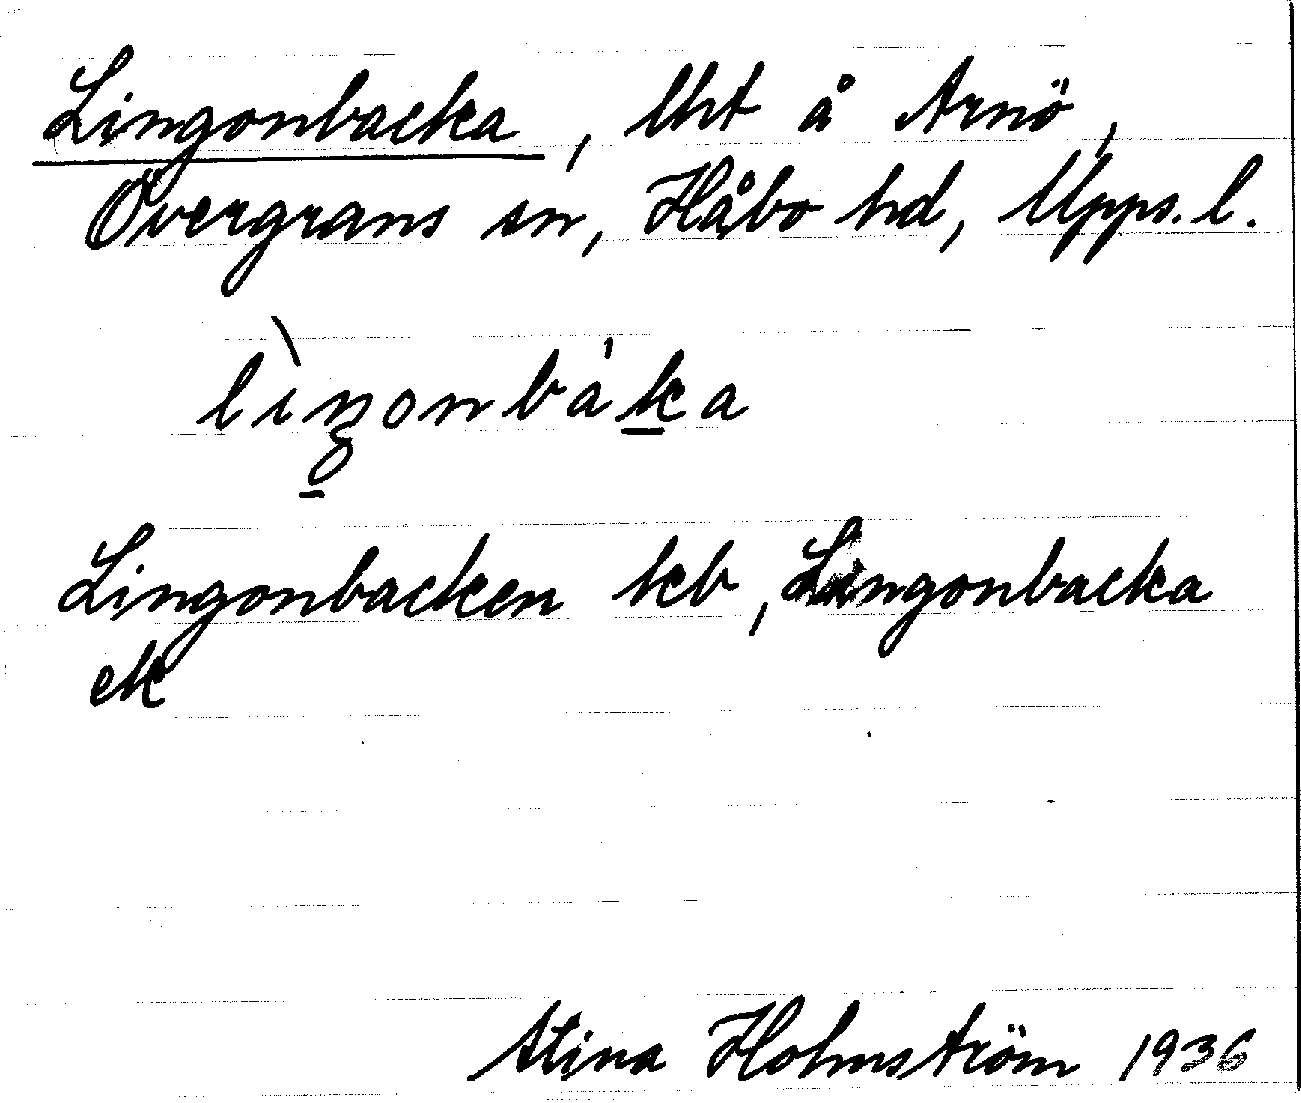 Lingonbacka, lht å Arnö,
Övergrans sn, Håbo hd, Upps. l.
lìŋonbáka
Lingonbacken kb, Lingonbacka
ek
Stina Holmström 1936